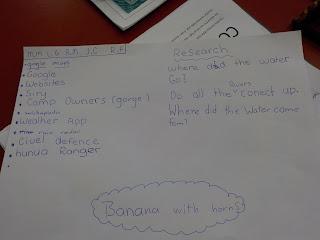 google maps
Google
Websites
Siry
Camp Owners (gorge)
Weather App
rain radar
Civel defence
hunua Ranger
Research
Where did the water
Go?
Do all the rivers conect up.
Where did the Water come
from?
Banana with horns